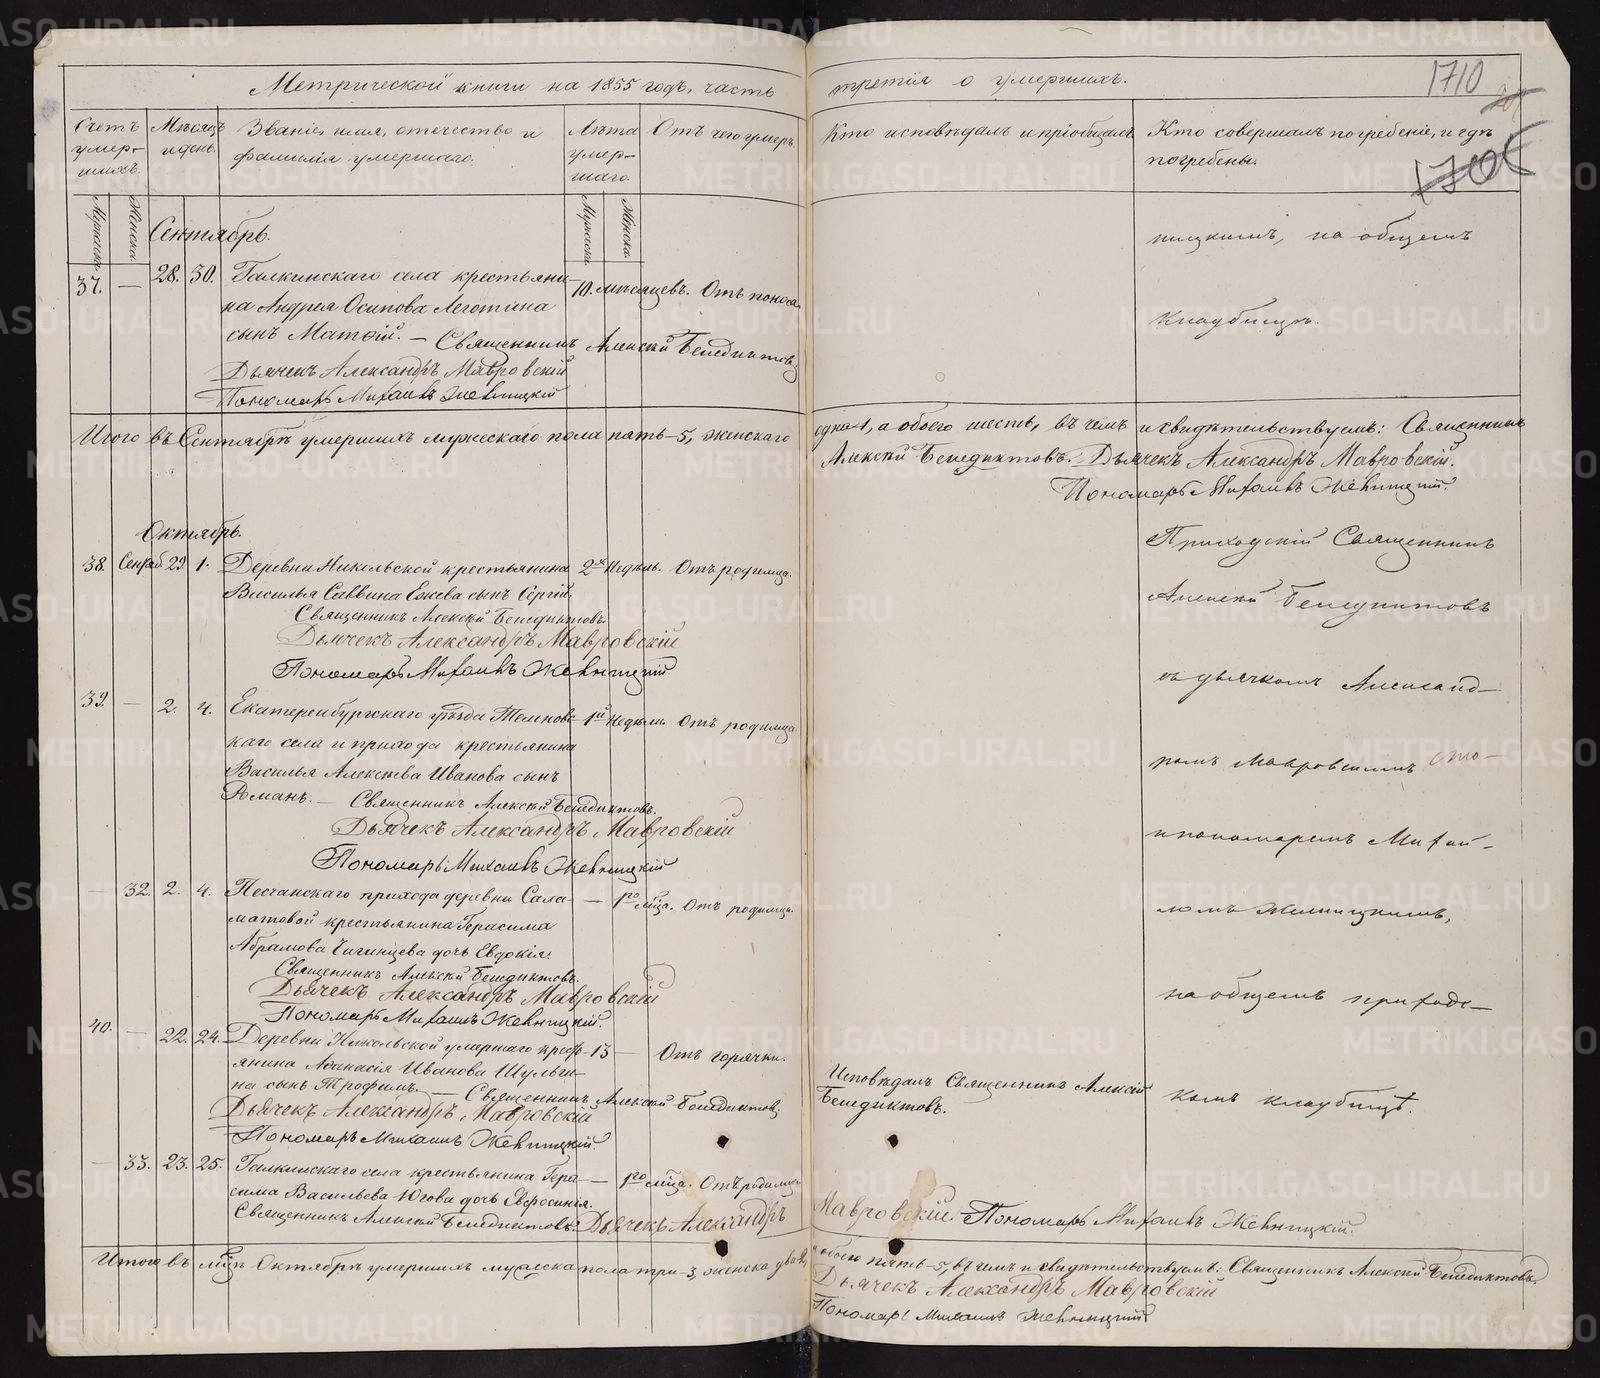 Метрической книги на 1855 годъ, часть третія о умершихъ.
1710
Счетъ умершихъ.
Мѣсяцъ и день.
Званіе, имя, отечество и фамилія умершаго.
Лѣта умершаго.
Отъ чего умеръ.
Кто исповѣдалъ и пріобщалъ
Кто совершалъ погребеніе, и гдѣ погребены.
Мужска.
Женска.
Мужска.
Женска.
Сентябрь.
37. — 28. 30. Галкинскаго села крестьяни- 10. мѣсяцевъ. Отъ поноса
на Андрея Осипова Леготина
сынъ Матѳій. — Священникъ Алексій Бенедиктовъ
Дьячекъ Александръ Мавровскій
Пономарь Михаилъ Жевницкій
ницкимъ, на общемъ
кладбищѣ.
Итого въ Сентябрѣ умершихъ мужескаго пола пять-5, женскаго одна 1, а обоего шесть, въ чемъ и свидѣтельствуемъ: Священникъ
Алексій Бенедиктовъ. Дьячекъ Александръ Мавровскій.
Пономарь Михаилъ Жевницкій.
Октябрь.
38. 29. 1. Деревни Никольской крестьянина 2хъ недѣль. Отъ родимца.
Василья Саввина Ежева сынъ Сергій.
Священникъ Алексій Бенедиктовъ.
Дьячекъ Александръ Мавровскій
Пономарь Михаилъ Жевницкій
39. — 2. 4. Екатеринбургскаго уѣзда 1й недѣли. Отъ родимца
каго села и прихода крестьянина
Василья Алексѣева Иванова сынъ
Романъ. — Священникъ Алексій Бенедиктовъ.
Дьячекъ Александръ Мавровскій
Пономарь Михаилъ Жевницкій
— 32. 2. 4. Песчанскаго прихода деревни Сала- — 1го мѣсца. Отъ родимца.
матовой крестьянина Герасима
Абрамова Чигинцева дочь Евдокія.
Священникъ Алексій Бенедиктовъ.
Дьячекъ Александръ Мавровскій
Пономарь Михаилъ Жевницкій.
40. — 22. 24. Деревни Никольской умершаго кресть- 13 — Отъ горячки.
янина Аѳанасія Иванова Шульги-
на сынъ Трофимъ. — Священникъ Алексій Бенедиктовъ
Дьячекъ Александръ Мавровскій
Пономарь Михаилъ Жевницкій.
Исповѣдалъ Священникъ Алексій
Бенедиктовъ.
— 33. 23. 25. Галкинскаго села крестьянина Гера- — 1го мѣсца. Отъ родимца
сима Васильева Югова дочь Евфросинія.
Священникъ Алексій Бенедиктовъ. Дьячекъ Александръ Мавровскій. Пономарь Михаилъ Жевницкій.
Приходскій Священникъ
Алексій Бенедиктовъ
съ дьячкомъ Александ-
ромъ Мавровскимъ
и пономаремъ Михаи-
ломъ Жевницкимъ,
на общемъ приходс-
комъ кладбищѣ.
Итого въ мѣсцѣ Октябрѣ умершихъ мужска пола три-3, женска два 2, обоего пять-5, въ чемъ и свидѣтельствуемъ: Священникъ Алексій Бенедиктовъ.
Дьячекъ Александръ Мавровскій
Пономарь Михаилъ Жевницкій
METRIKI.GASO-URAL.RU